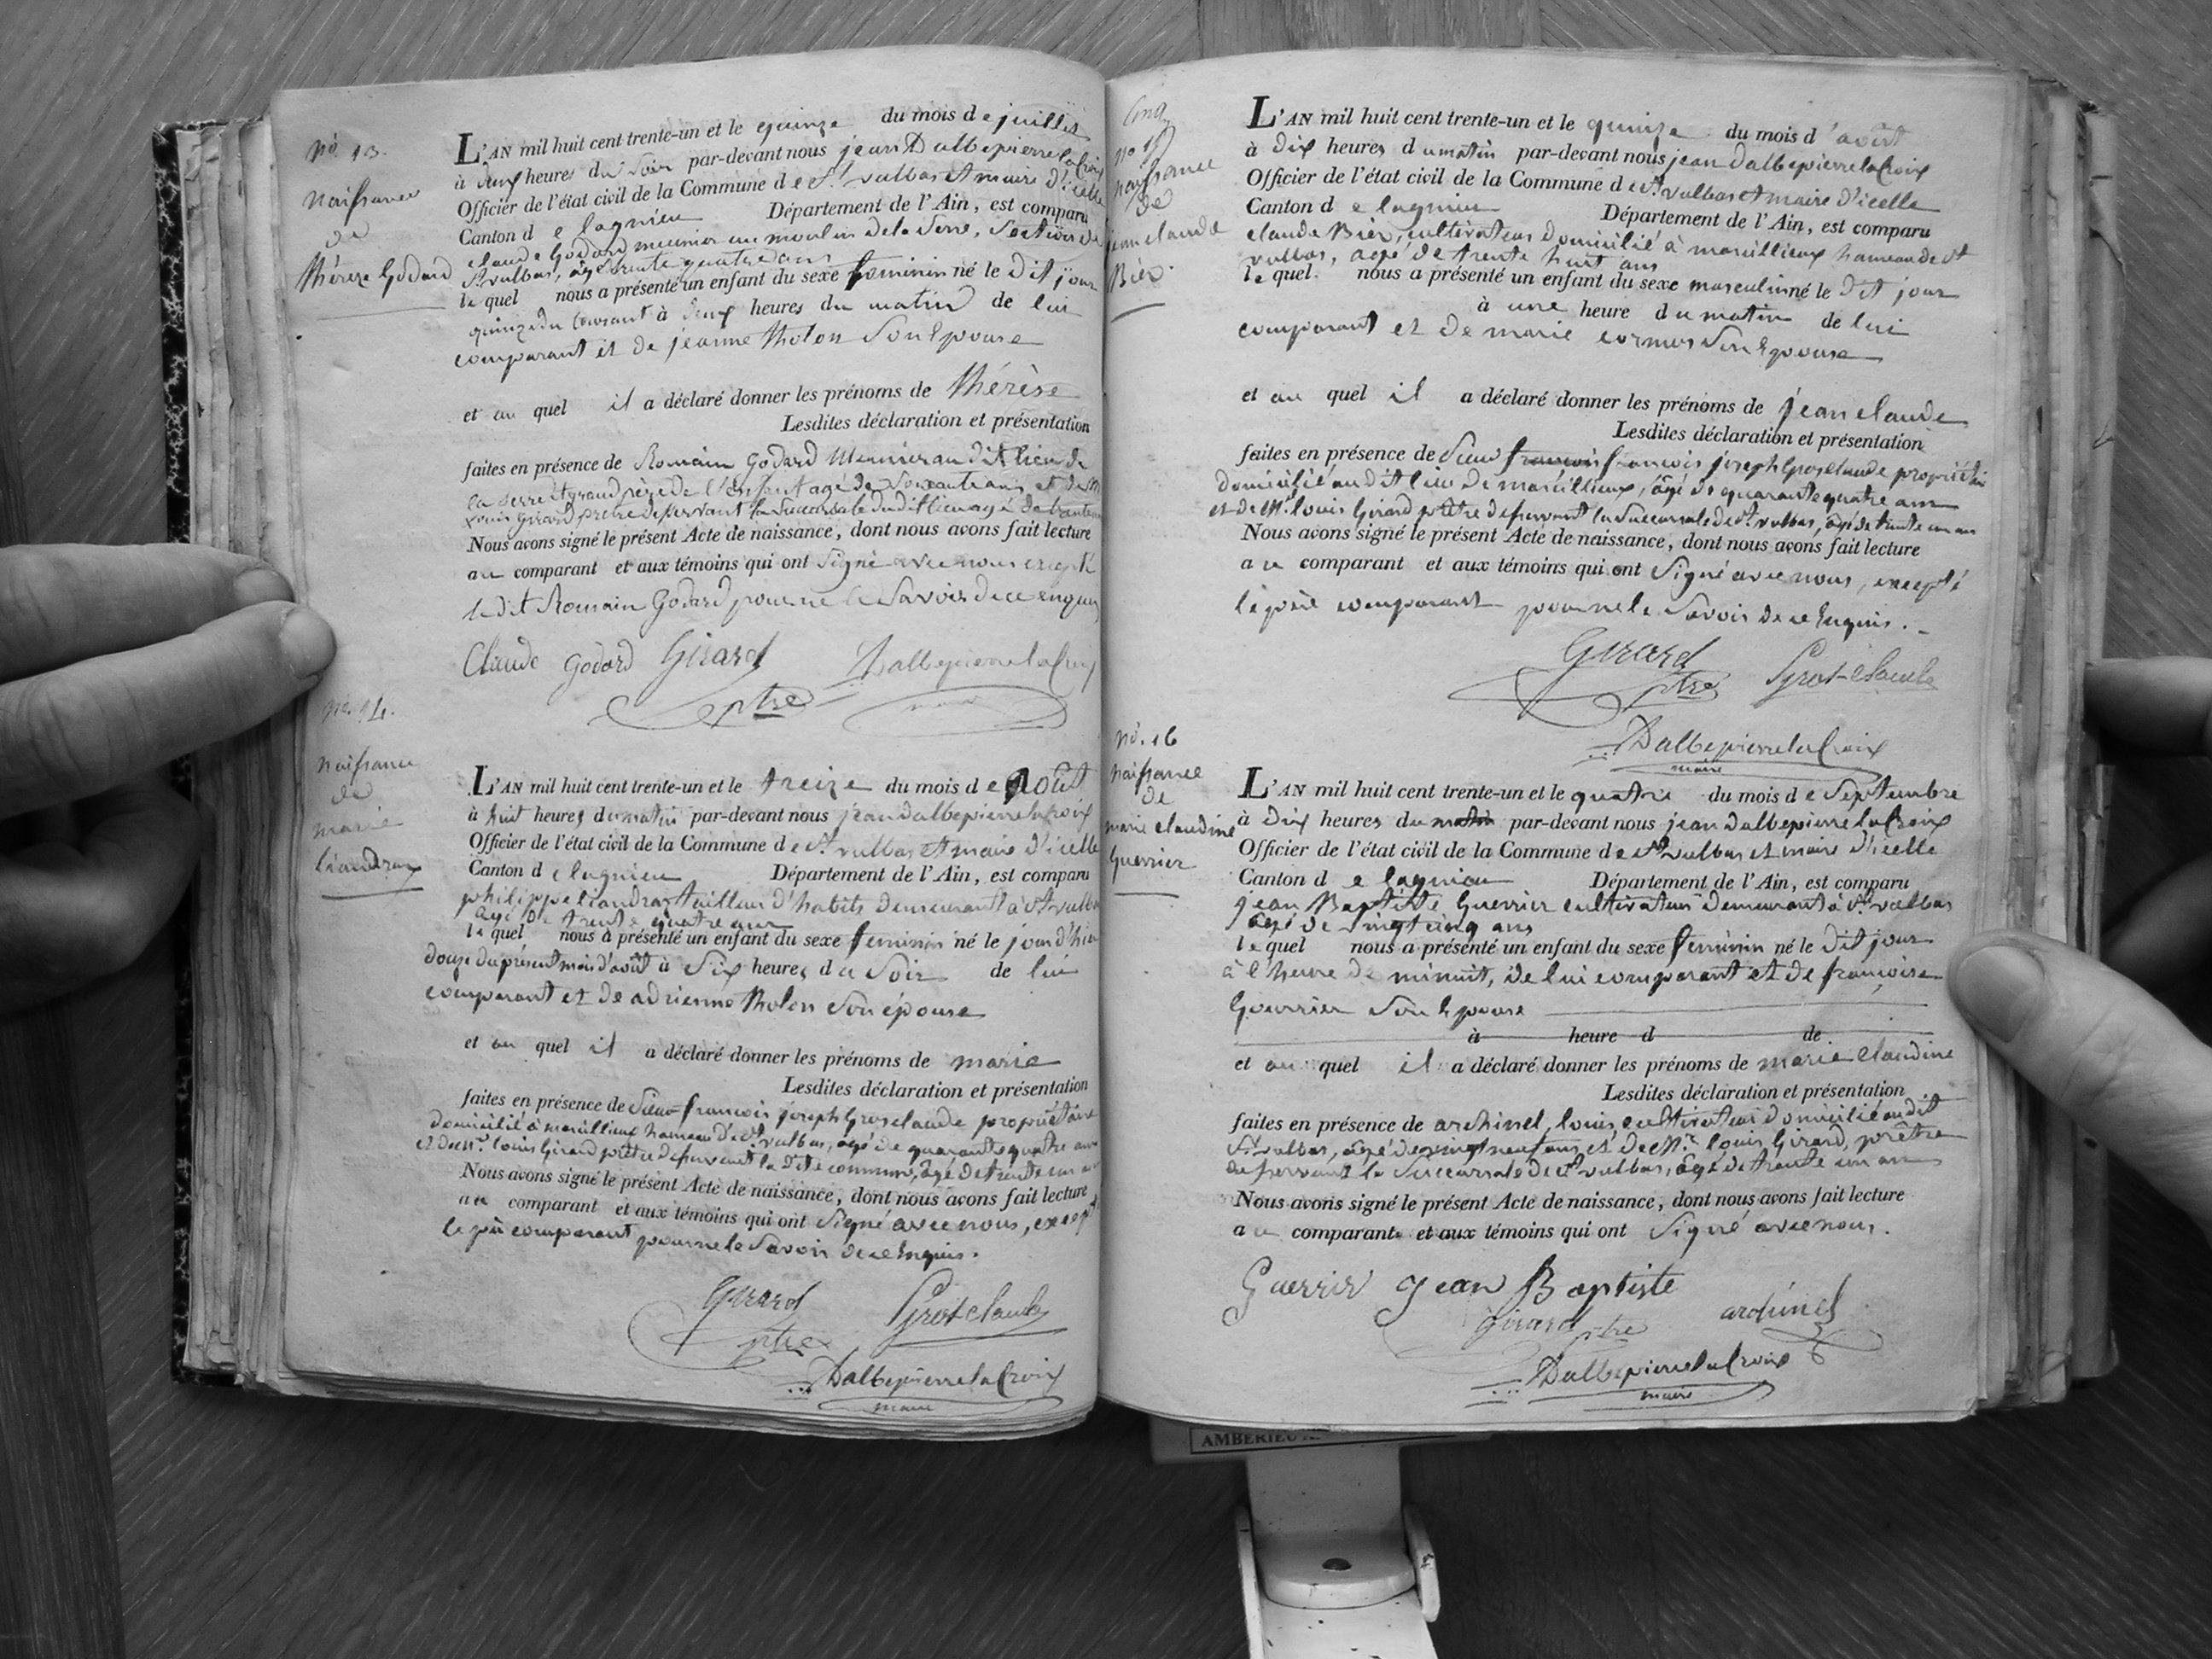 nº. 13.
naissance
de
thérèze Godard
L'AN mil huit cent trente-un et le quinze du mois de juillet
à deux heures du soir par-devant nous jean Dalbepierrelacroix
Officier de l'état civil de la Commune de St. vulbas et maire d'icelle
Canton de lagnieu Département de l'Ain, est comparu
claude Godard meunier au moulin de la Serre, Section de
St. vulbas, âgé trente quatre ans
lequel nous a présenté un enfant du sexe feminin né le dit jour
quinze du courant à deux heures du matin de lui
comparant et de jeanne tholon son Epouse
et au quel il a déclaré donner les prénoms de thérèse
Lesdites déclaration et présentation
faites en présence de Romain Godard Meunier au dit lieu de
la serre et grand père de l'enfant agé de soixante ans et de Mr
louis Girard prêtre desservant la Succursale du dit lieu agé de trente un
Nous avons signé le présent Acte de naissance, dont nous avons fait lecture
au comparant et aux témoins qui ont Signé avec nous excepté
le dit Romain Godard pour ne le Savoir de ce enquis
Claude Godard Girard Dalbepierrelacroix
ptre maire
nº. 14.
naissance
de
marie
liandraz
L'AN mil huit cent trente-un et le treize du mois de Août
à huit heures du matin par-devant nous jean dalbepierrelacroix
Officier de l'état civil de la Commune de St. vulbas et maire d'icelle
Canton de lagnieu Département de l'Ain, est comparu
philippe liandraz tailleur d'habits demeurant à St vulbas
âgé de trente quatre ans
lequel nous a présenté un enfant du sexe feminin né le jour d'hier
douze du présent mois d'août à Six heures du Soir de lui
comparant et de adrienne tholon Son épouse
et au quel il a déclaré donner les prénoms de marie
Lesdites déclaration et présentation
faites en présence de Sieur francois joseph Grosclaude propriétaire
domicilié à marcillieux hameau de St. vulbas, âgé de quarante quatre ans
et de Mr. louis Girard prêtre desservant la dite commune, âgé de trente un an
Nous avons signé le présent Acte de naissance, dont nous avons fait lecture
au comparant et aux témoins qui ont Signé avec nous, excepté
le père comparant pour ne le Savoir de ce Enquis.
Girard Grosclaude
ptre
Dalbepierrelacroix
maire
Cinq
nº 15
naissance
de
jean claude
Bier
L'AN mil huit cent trente-un et le quinze du mois d'août
à dix heures du matin par-devant nous jean Dalbepierrelacroix
Officier de l'état civil de la Commune de St. vulbas et maire d'icelle
Canton de lagnieu Département de l'Ain, est comparu
claude Bier, cultivateur domicilié à marcillieux hameau de St
vulbas, agé de trente huit ans
lequel nous a présenté un enfant du sexe masculin né le dit jour
à une heure du matin de lui
comparant et de marie cormor Son Epouse
et au quel il a déclaré donner les prénoms de jean claude
Lesdites déclaration et présentation
faites en présence de Sieur francois francois joseph Grosclaude propriétaire
domicilié au dit lieu de marcillieux, âgé de quarante quatre ans
et de Mr. louis Girard prêtre desservant la Succursale de St. vulbas, âgé de trente un an
Nous avons signé le présent Acte de naissance, dont nous avons fait lecture
au comparant et aux témoins qui ont Signé avec nous, excepté
le père comparant pour ne le Savoir de ce Enquis.
Girard Grosclaude
ptre
Dalbepierrelacroix
maire
nº. 16
naissance
de
marie claudine
Guerrier
L'AN mil huit cent trente-un et le quatre du mois de Septembre
à dix heures du matin par-devant nous jean dalbepierrelacroix
Officier de l'état civil de la Commune de St. vulbas et maire d'icelle
Canton de lagnieu Département de l'Ain, est comparu
jean Baptiste Guerrier cultivateur demeurant à St. vulbas
âgé de vingt cinq ans
lequel nous a présenté un enfant du sexe feminin né le dit jour
à l'heure de minuit, de lui comparant et de françoise
Gourrier Son Epouse
à heure d de
et au quel il a déclaré donner les prénoms de marie Claudine
Lesdites déclaration et présentation
faites en présence de archinel, louis, cultivateur domicilié au dit
St. vulbas, âgé de vingt neuf ans, et de Mr. louis Girard, prêtre
desservant la Succursale de St vulbas, âgé de trente un an
Nous avons signé le présent Acte de naissance, dont nous avons fait lecture
au comparant et aux témoins qui ont Signé avec nous.
Guerrir jean Baptiste
Girard ptre archinel
Dalbepierrelacroix
maire
AMBERIEU